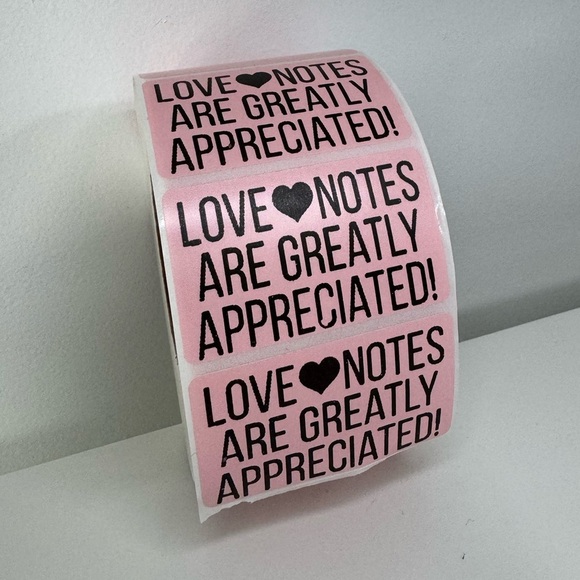 LOVE🖤NOTES
ARE GREATLY
APPRECIATED!
LOVE🖤NOTES
ARE GREATLY
APPRECIATED!
LOVE🖤NOTES
ARE GREATLY
APPRECIATED!